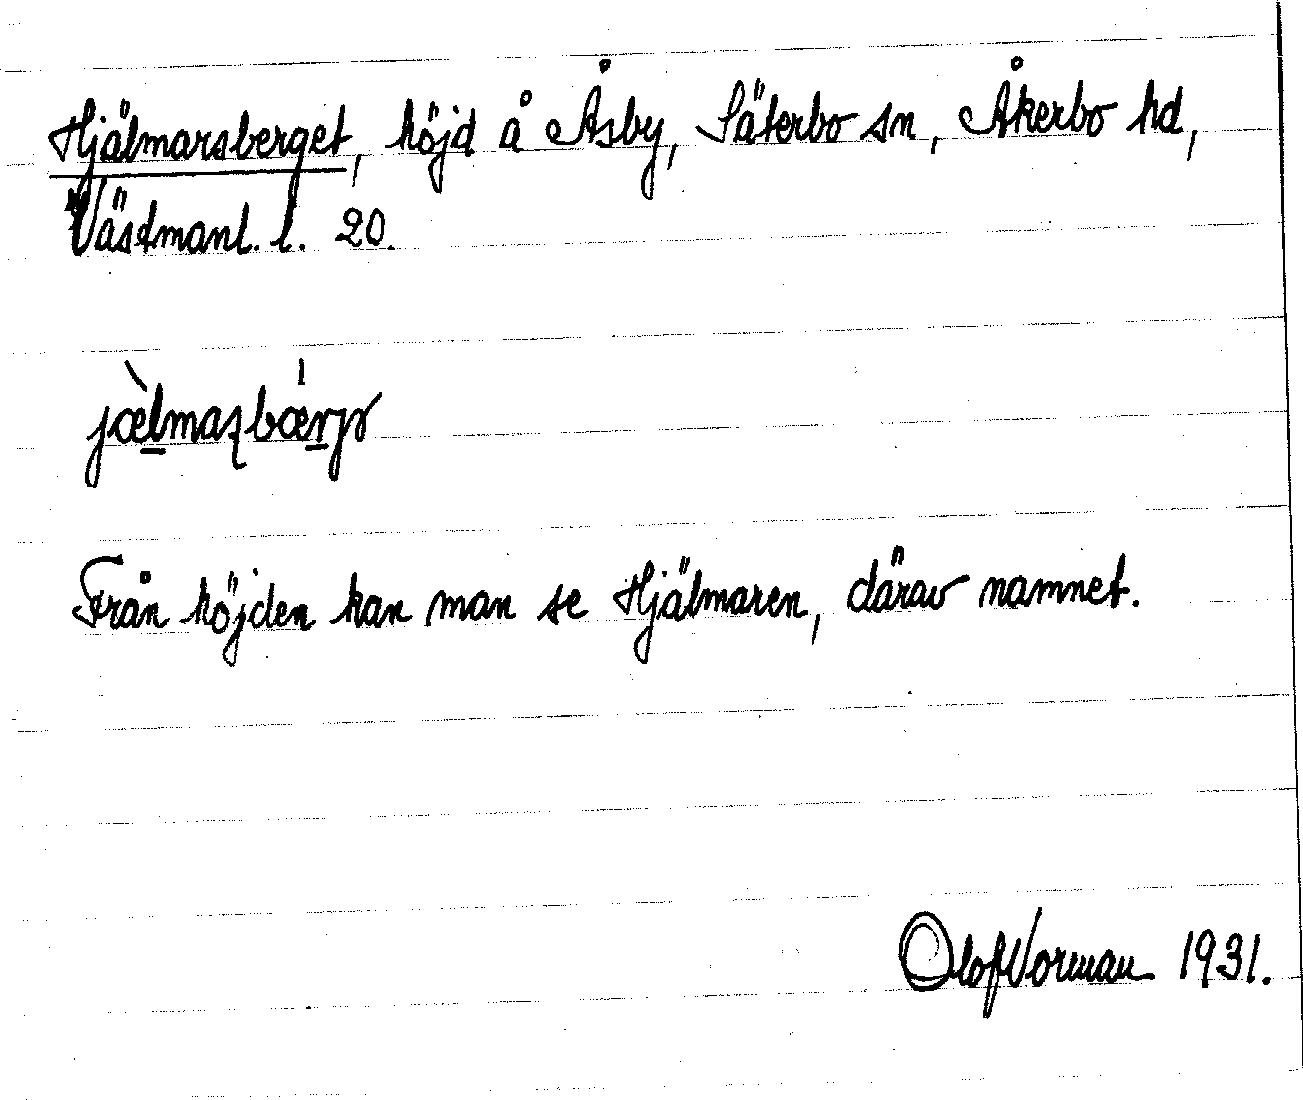 Hjälmarsberget, höjd å Åsby, Säterbo sn, Åkerbo hd,
Västmanl. l. 20.
jæ̀lmaʂbǽrjə
Från höjden kan man se Hjälmaren, därav namnet.
Olof Vorman 1931.